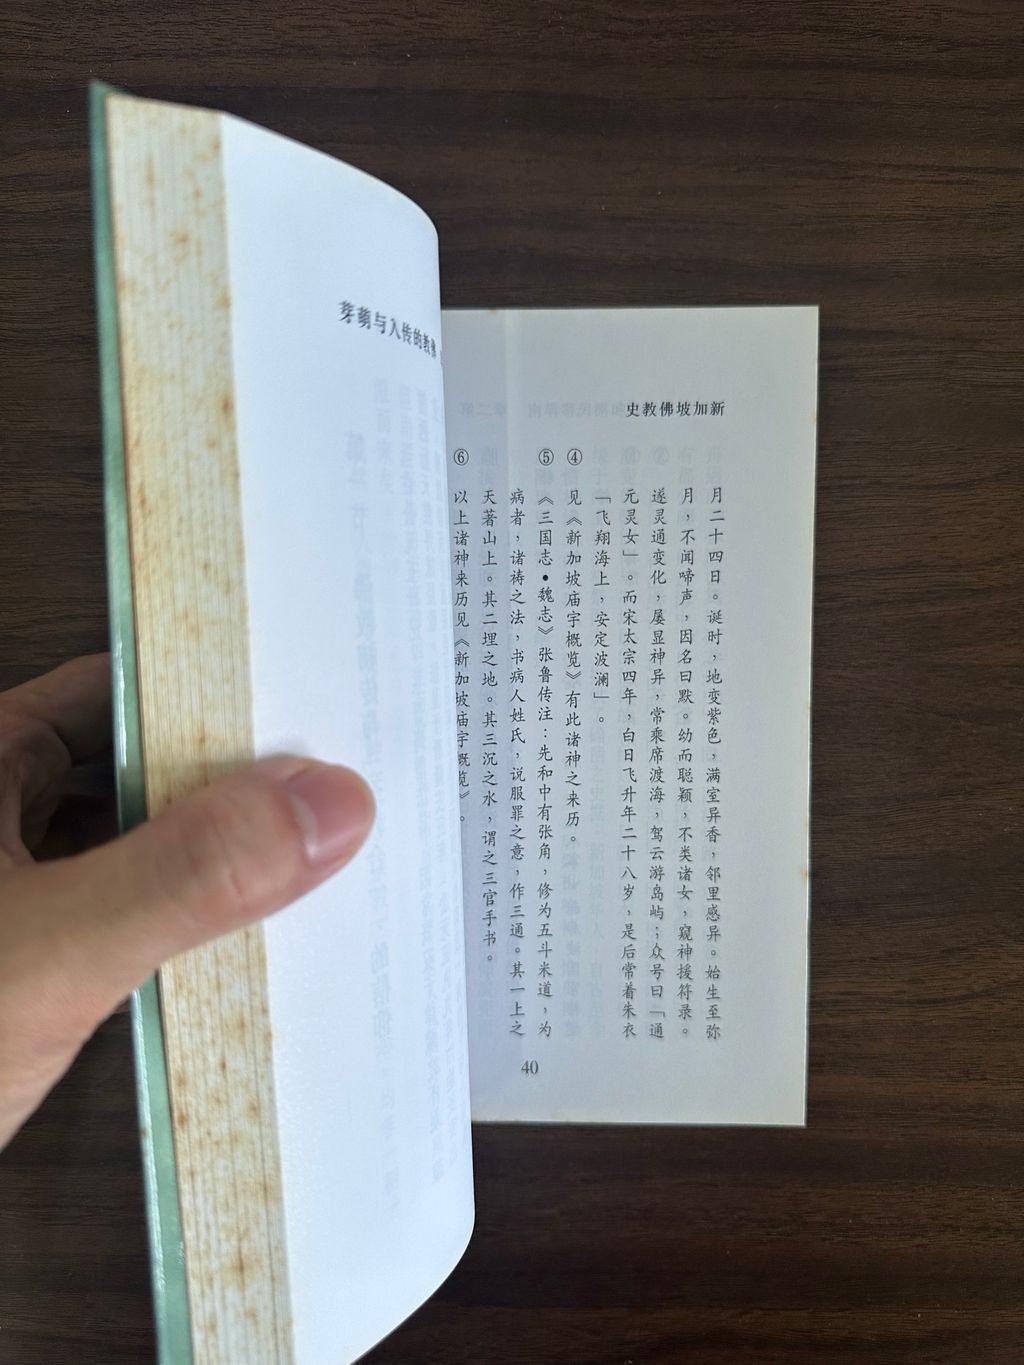 新加坡佛教史
月二十四日。诞时，地变紫色，满室异香，邻里感异。始生至弥
月，不闻啼声，因名曰默。幼而聪颖，不类诸女，窥神援符录。
遂灵通变化，屡显神异，常乘席渡海，驾云游岛屿；众号曰「通
元灵女」。而宋太宗四年，白日飞升年二十八岁，是后常着朱衣
「飞翔海上，安定波澜」。
④见《新加坡庙宇概览》有此诸神之来历。
⑤《三国志•魏志》张鲁传注：先和中有张角，修为五斗米道，为
病者，诸祷之法，书病人姓氏，说服罪之意，作三通。其一上之
天著山上。其二埋之地。其三沉之水，谓之三官手书。
⑥以上诸神来历见《新加坡庙宇概览》。
40
佛教的传入与萌芽